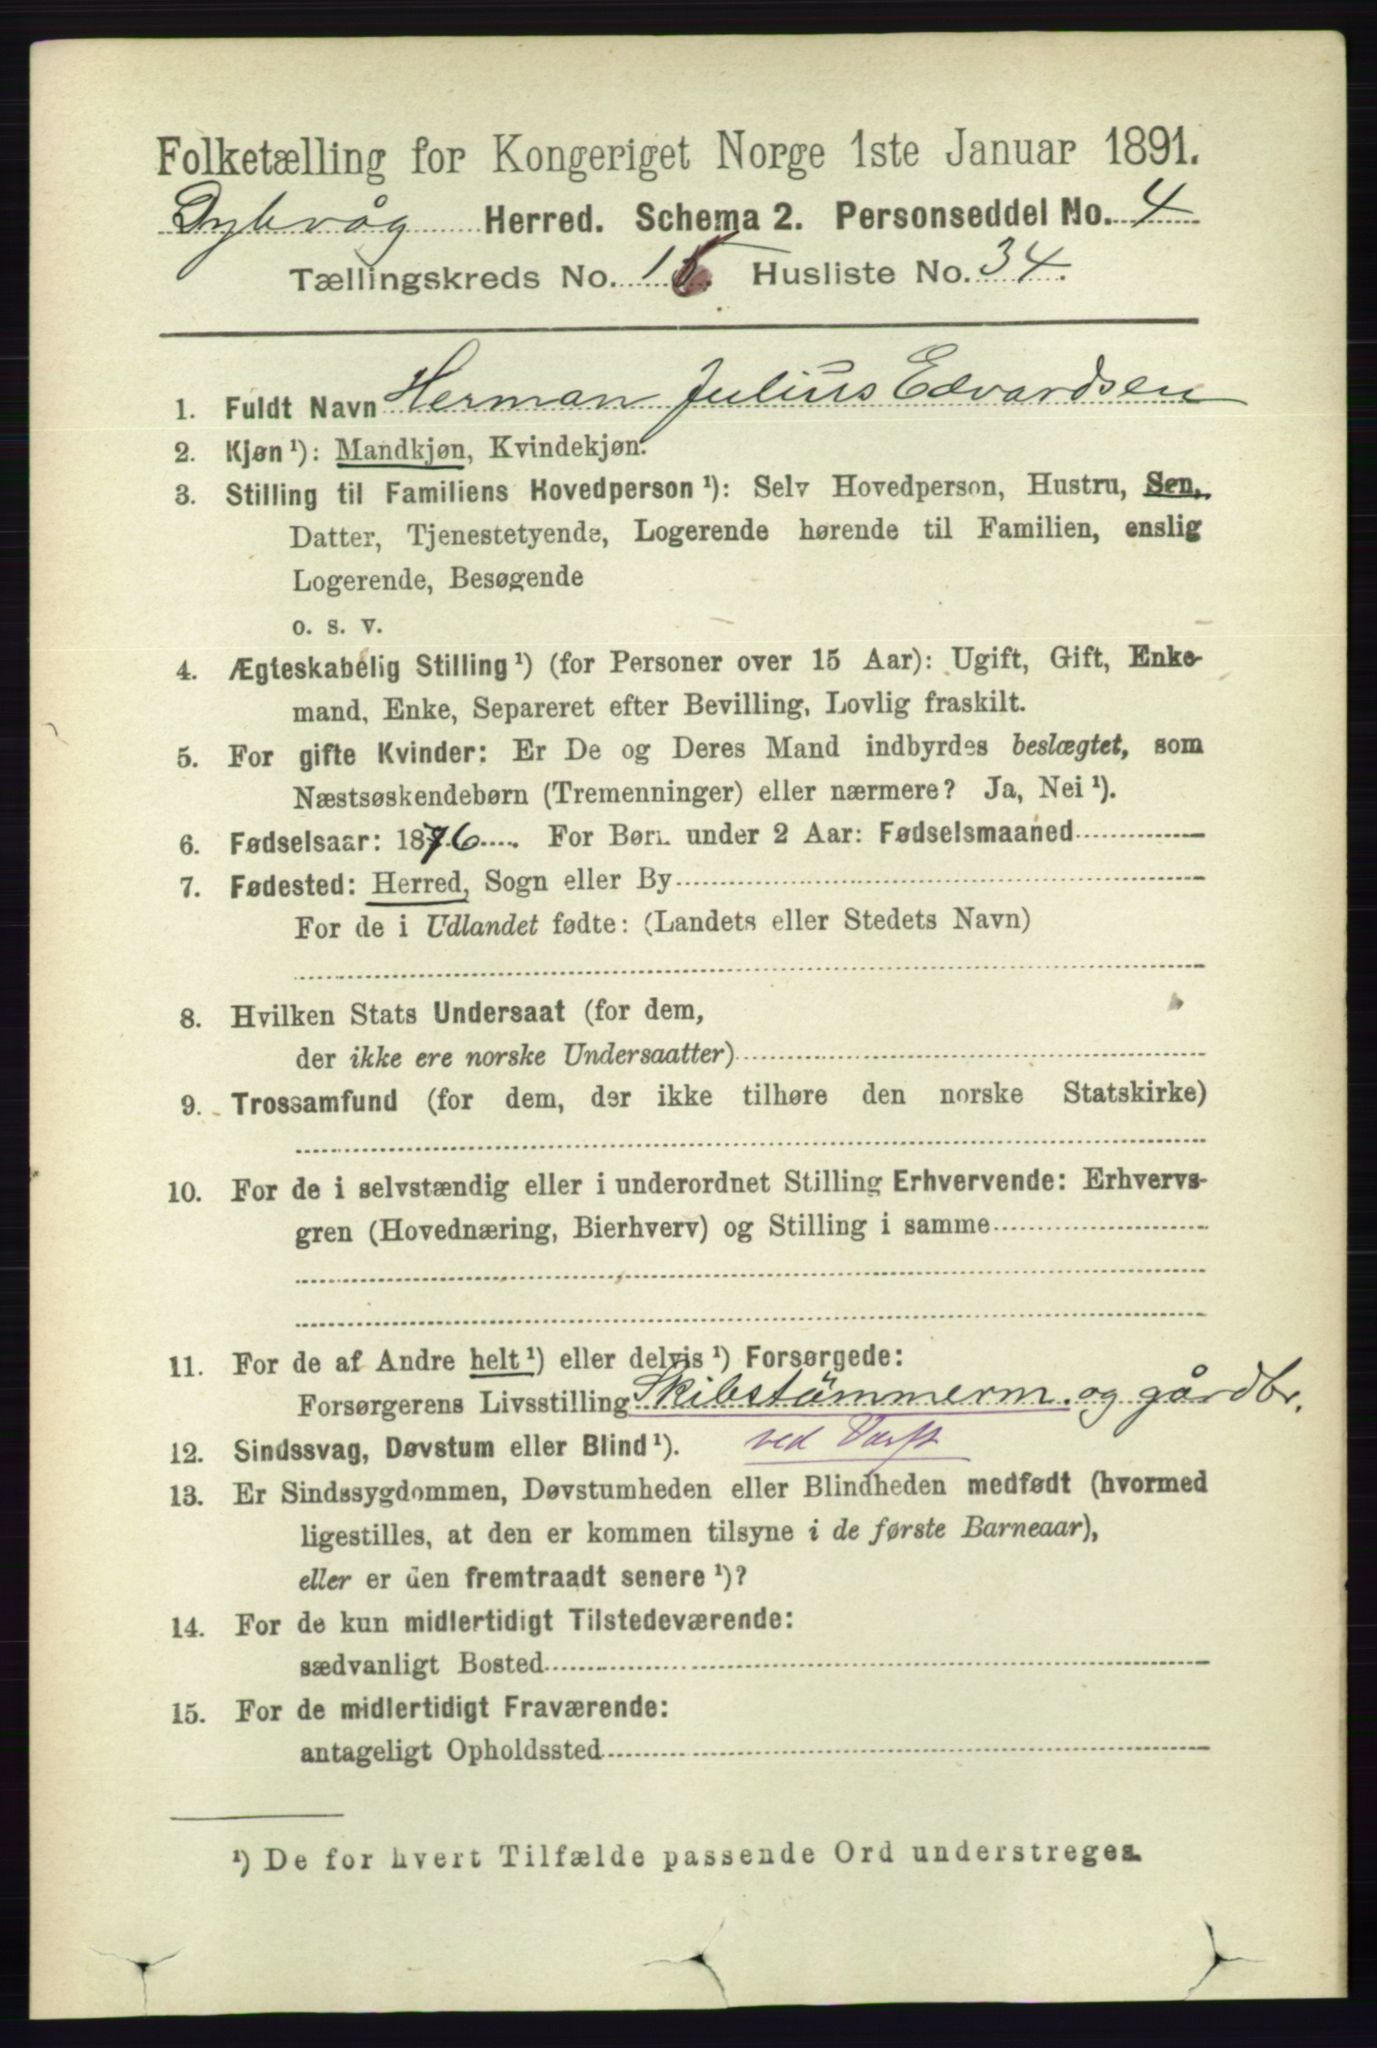 Folketælling for Kongeriget Norge 1ste Januar 1891.
Dybvåg Herred. Schema 2. Personseddel No. 4
Tællingskreds No. 15. Husliste No. 34.
1. Fuldt Navn Herman Julius Edvardsen
2. Kjøn ¹): Mandkjøn, Kvindekjøn.
3. Stilling til Familiens Hovedperson ¹): Selv Hovedperson, Hustru, Søn,
Datter, Tjenestetyende, Logerende hørende til Familien, enslig
Logerende, Besøgende
o. s. v.
4. Ægteskabelig Stilling ¹) (for Personer over 15 Aar): Ugift, Gift, Enke-
mand, Enke, Separeret efter Bevilling, Lovlig fraskilt.
5. For gifte Kvinder: Er De og Deres Mand indbyrdes beslægtet, som
Næstsøskendebørn (Tremenninger) eller nærmere? Ja, Nei ¹).
6. Fødselsaar: 1876. For Børn under 2 Aar: Fødselsmaaned
7. Fødested: Herred, Sogn eller By
For de i Udlandet fødte: (Landets eller Stedets Navn)
8. Hvilken Stats Undersaat (for dem,
der ikke ere norske Undersaatter)
9. Trossamfund (for dem, der ikke tilhøre den norske Statskirke)
10. For de i selvstændig eller i underordnet Stilling Erhvervende: Erhvervs-
gren (Hovednæring, Bierhverv) og Stilling i samme
11. For de af Andre helt ¹) eller delvis ¹) Forsørgede:
Forsørgerens Livsstilling Skibstömmerm. og gårdbr.
12. Sindssvag, Døvstum eller Blind ¹). ved Værft
13. Er Sindssygdommen, Døvstumheden eller Blindheden medfødt (hvormed
ligestilles, at den er kommen tilsyne i de første Barneaar),
eller er den fremtraadt senere ¹)?
14. For de kun midlertidigt Tilstedeværende:
sædvanligt Bosted
15. For de midlertidigt Fraværende:
antageligt Opholdssted
¹) De for hvert Tilfælde passende Ord understreges.